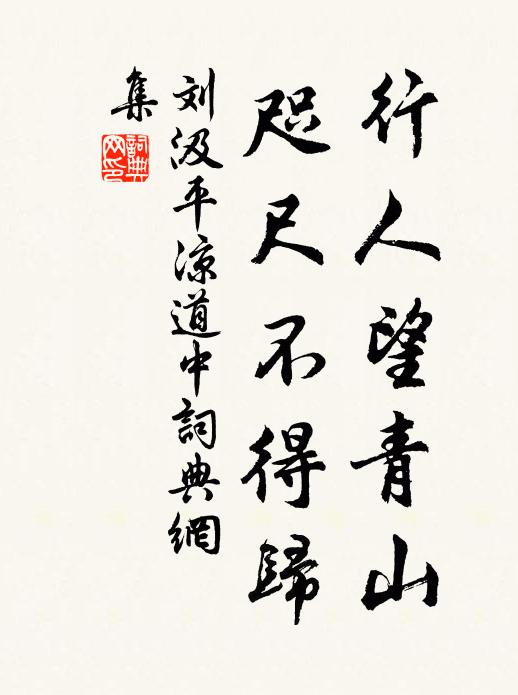 行人望青山
咫尺不得歸
刘汲平凉道中詞典網
集
詞典
网印